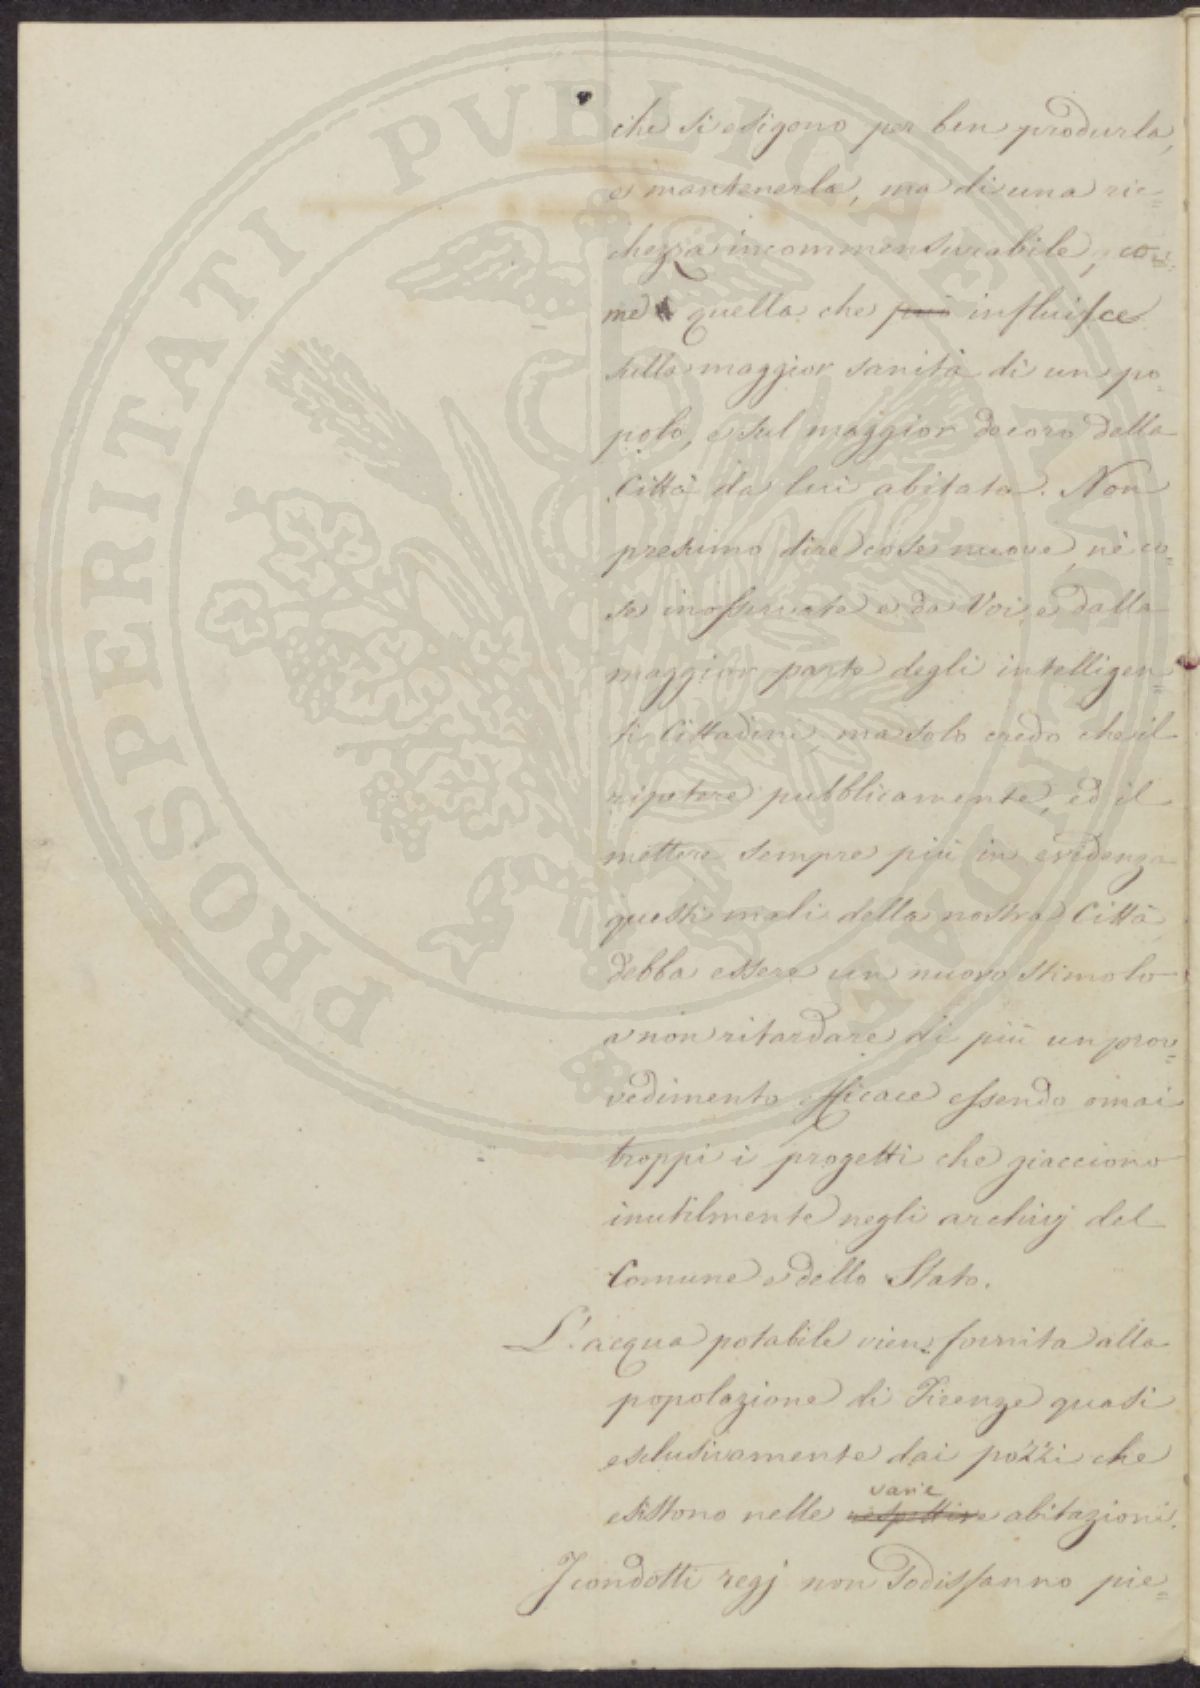 che si esigono per ben produrla,
e mantenerla, ma di una ric=
chezza incommensurabile, co=
me quella che può influisce
sulla maggior sanità di un po=
polo, e sul maggior decoro della
Città da lui abitata. Non
presumo dire cose nuove, nè co=
se inosservate e da Voi, e dalla
maggior parte degli intelligen=
ti Cittadini, ma solo credo che il
ripetere pubblicamente, ed il
mettere sempre più in evidenza
questi mali della nostra Città
debba essere un nuovo stimolo
a non ritardare di più un prov=
vedimento efficace essendo omai
troppi i progetti che giacciono
inutilmente negli archivj del
Comune e dello Stato.
L'acqua potabile vien fornita alla
popolazione di Firenze quasi
esclusivamente dai pozzi che
varie
esistono nelle respettive abitazioni.
I condotti regj non sodisfanno pie=
PROSPERITATI PVBLICAE AVGENDAE